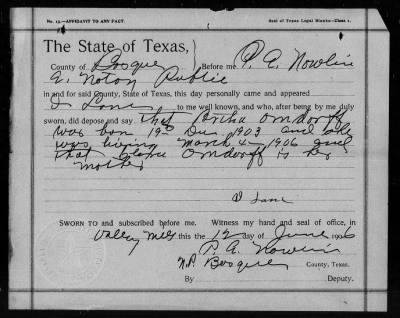 No. 13.—AFFIDAVIT TO ANY FACT.
Seal of Texas Legal Blanks—Class 1.
The State of Texas,}
County of Bosque } Before me P. A. Nowlin
a Notary Public
in and for said County, State of Texas, this day personally came and appeared
J Lane to me well known, and who, after being by me duly
sworn, did depose and say that Omdorff
was born 19th Dec 1903 and she
was living March 4 1906 and
that Omdorff is her
mother
J Lane
SWORN TO and subscribed before me. Witness my hand and seal of office, in
Valley Mills this the 12 day of June 1906
P. A. Nowlin
N.P. Bosque County, Texas.
By Deputy.